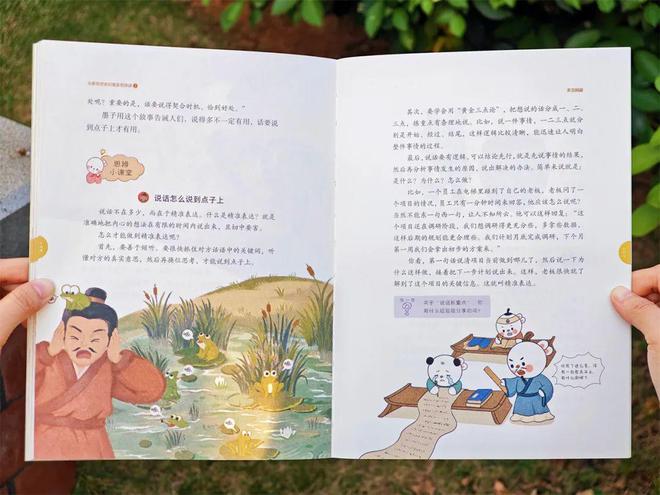 处呢？重要的是，话要说得契合时机，恰到好处。”
墨子用这个故事告诫人们，说得多不一定有用，话要说
到点子上才有用。
思辨
小课堂
说话怎么说到点子上
说话不在多少，而在于精准表达。什么是精准表达？就是
准确地把内心的想法在有限的时间内说出来，且切中要害。
怎么才能做到精准表达呢？
首先，要善于倾听。要很快抓住对方话语中的关键词，听
懂对方的真实意思，然后再换位思考，才能说到点子上。
其次，要学会用“黄金三点论”，把想说的话分成一、二、
三点，练重点有条理地说。比如，说一件事情，一二三点就分
别是开始、经过、结尾，这样逻辑比较清晰，能迅速让人明白
整件事情的过程。
最后，说话要有逻辑，可以结论先行，就是先说事情的结果，
然后再分析事情发生的原因，说出解决的办法。简单来说就是：
是什么？为什么？怎么做？
比如，一个员工在电梯里碰到了自己的老板，老板问了一
个项目的情况，员工只有一分钟时间来回答，他应该怎么说呢？
当然不能东一句西一句，让人不知所云。他可以这样回复：“这
个项目还在调研阶段，我们想调研得更充分些，多拿些数据，
这样后期的规划能更合理些。我们计划月底完成调研，下个月
第一周我们会拿出初步的方案来。”
你看，第一句话说清项目当前做到哪儿了，然后说一下为
什么这样做，接着把下一步计划说出来。这样，老板很快就了
解到了这个项目的关键信息。这就叫精准表达。
关于“说话抓重点”，你
有什么经验能分享的吗？